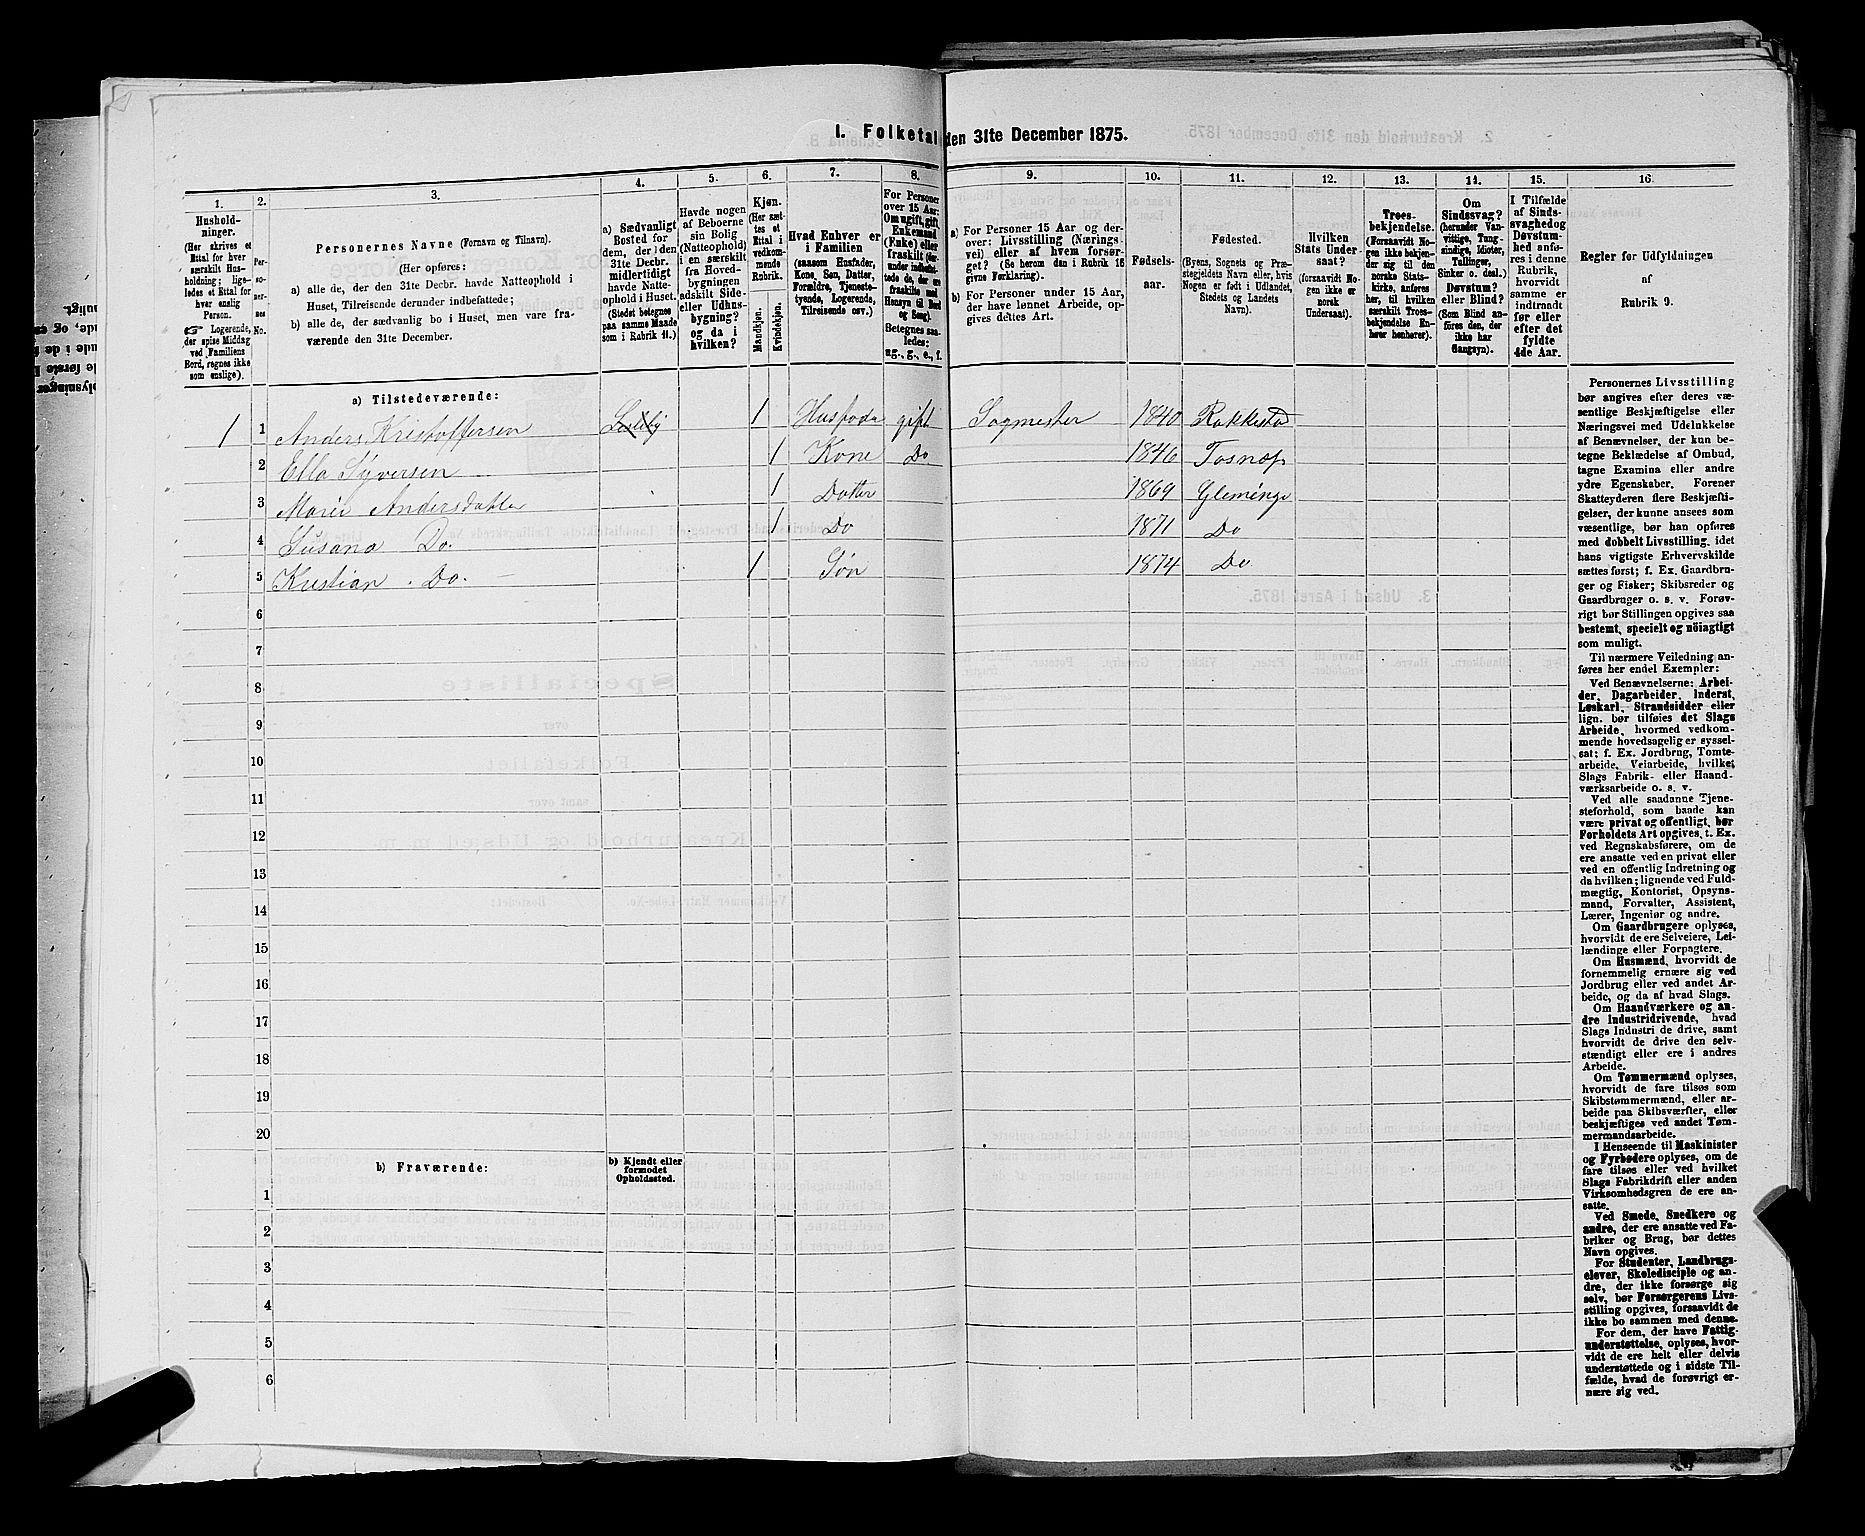 I. Folketal den 31te December 1875.
1. 2. 3. 4. 5. 6. 7. 8. 9. 10. 11. 12. 13. 14. 15. 16.
Hushold-
ninger.
(Her skrives et
Ettal for hver
særskilt Hus-
holdning; lige-
ledes et Ettal for
hver enslig
Person.
☞ Logerende,
der spise Middag
ved Familiens
Bord, regnes ikke
som enslige).
Per-
so-
ner-
nes
No.
Personernes Navne (Fornavn og Tilnavn).
(Her opføres:
a) alle de, der den 31te Decbr. havde Natteophold i
Huset, Tilreisende derunder indbefattede;
b) alle de, der sædvanlig bo i Huset, men vare fra-
værende den 31te December.
a) Sædvanligt
Bosted for
dem, der den
31te Decbr.
midlertidigt
havde Natte-
ophold i Huset.
(Stedet betegnes
paa samme Maade
som i Rubrik 11.)
Havde nogen
af Beboerne
sin Bolig
(Natteophold)
i en særskilt
fra Hoved-
bygningen
adskilt Side-
eller Udhus-
bygning?
og da i
hvilken?
Kjøn.
(Her sæt-
tes et
Ettal i
vedkom-
mende
Rubrik.
Mandkjøn.
Kvindekjøn.
Hvad Enhver er
i Familien
(saasom Husfader,
Kone, Søn, Datter,
Forældre, Tjeneste-
tyende, Logerende,
Tilreisende osv.)
For Personer
over 15 Aar:
Om ugift, gift,
Enkemand
(Enke) eller
fraskilt (her-
under indbefat-
tede de, der ere
fraskilte med
Hensyn til Bord
og Seng).
Betegnes saa-
ledes:
ug., g., e., f.
a) For Personer 15 Aar og der-
over: Livsstilling (Nærings-
vei) eller af hvem forsør-
get? (Se herom den i Rubrik 16
givne Forklaring).
b) For Personer under 15 Aar,
der have lønnet Arbeide, op-
gives dettes Art.
Fødsels-
aar.
Fødested.
(Byens, Sognets og Præ-
stegjeldets Navn eller, hvis
Nogen er født i Udlandet,
Stedets og Landets
Navn).
Hvilken
Stats Under-
saat?
(forsaavidt No-
gen ikke er
norsk
Undersaat).
Troes-
bekjendelse.
(Forsaavidt No-
gen ikke bekjen-
der sig til den
norske Stats-
kirke, anføres
her, til hvilken
særskilt Troes-
bekjendelse En-
hver henhører).
Om
Sindssvag?
(herunder Van-
vittige, Tung-
sindige, Idioter,
Tullinger,
Sinker o. desl.)
Døvstum?
eller Blind?
(Som Blind an-
føres den, der
ikke har
Gangsyn).
I Tilfælde
af Sinds-
svaghed og
Døvstum-
hed anfø-
res i denne
Rubrik,
hvorvidt
samme er
indtraadt
før eller
efter det
fyldte
4de Aar.
Regler for Udfyldningen
af
Rubrik 9.
a) Tilstedeværende:
1 1 Anders Kristoffersen 1 Husfader gift Sagmester 1840 Rakkestad
2 Ella Syversen 1 Kone Do 1846
3 Marie Andersdatter 1 Datter 1869 Gleminge
4 Susana Do. 1 Do 1871 Do
5 Kristian . Do. — 1 Søn 1874 Do
6
7
8
9
10
11
12
13
14
15
16
17
18
19
20
b) Fraværende:
b) Kjendt eller
formodet
Opholdssted.
1
2
3
4
5
6
Personernes Livsstilling
bør angives efter deres væ-
sentlige Beskjæftigelse eller
Næringsvei med Udelukkelse
af Benævnelser, der kun be-
tegne Beklædelse af Ombud,
tagne Examina eller andre
ydre Egenskaber. Forener
Skatteyderen flere Beskjæfti-
gelser, der kunne ansees som
væsentlige, bør han opføres
med dobbelt Livsstilling, idet
hans vigtigste Erhvervskilde
sættes først; f. Ex. Gaardbru-
ger og Fisker; Skibsreder og
Gaardbruger o. s. v. Forøv-
rigt bør Stillingen opgives saa
bestemt, specielt og nöiagtigt
som muligt.
Til nærmere Veiledning an-
føres her endel Exempler:
Ved Benævnelserne: Arbei-
der, Dagarbeider, Inderst,
Løskarl, Strandsidder eller
lign. bør tilføies det Slags
Arbeide, hvormed vedkom-
mende hovedsagelig er syssel-
sat; f. Ex. Jordbrug, Tomte-
arbeide, Veiarbeide, hvilket
Slags Fabrik- eller Haand-
værksarbeide o. s. v.
Ved alle saadanne Tjene-
steforhold, som baade kan
være privat og offentligt, bør
Forholdets Art opgives, t. Ex.
ved Regnskabsførere, om de
ere ansatte ved en privat eller
ved en offentlig Indretning og
da hvilken; lignende ved Fuld-
mægtig, Kontorist, Opsyns-
mand, Forvalter, Assistent,
Lærer, Ingeniør og andre.
Om Gaardbrugere oplyses,
hvorvidt de ere Selveiere, Lei-
lændinge eller Forpagtere.
Om Husmænd, hvorvidt de
fornemmelig ernære sig ved
Jordbrug eller ved andet Ar-
beide, og da af hvad Slags.
Om Haandværkere og an-
dre Industridrivende, hvad
Slags Industri de drive, samt
hvorvidt de drive den selv-
stændigt eller ere i andres
Arbeide.
Om Tømmermænd oplyses,
hvorvidt de fare tilsøs som
Skibstømmermænd, eller ar-
beide paa Skibsværfter, eller
beskjæftiges ved andet Tøm-
mermandsarbeide.
I Henseende til Maskinister
og Fyrbødere oplyses, om de
fare tilsøs eller ved hvilket
Slags Fabrikdrift eller anden
Virksomhedsgren de ere an-
satte.
Ved Smede, Snedkere og
andre, der ere ansatte ved Fa-
briker og Brug, bør dettes
Navn opgives.
For Studenter, Landbrugs-
elever, Skoledisciple og an-
dre, der ikke forsørge sig
selv, bør Forsørgerens Livs-
stilling opgives, forsaavidt de
ikke bo sammen med denne.
For dem, der have Fattig-
understøttelse, oplyses, hvor-
vidt de ere helt eller delvis
understøttede og i sidste Til-
fælde, hvad de forøvrigt er-
nære sig ved.